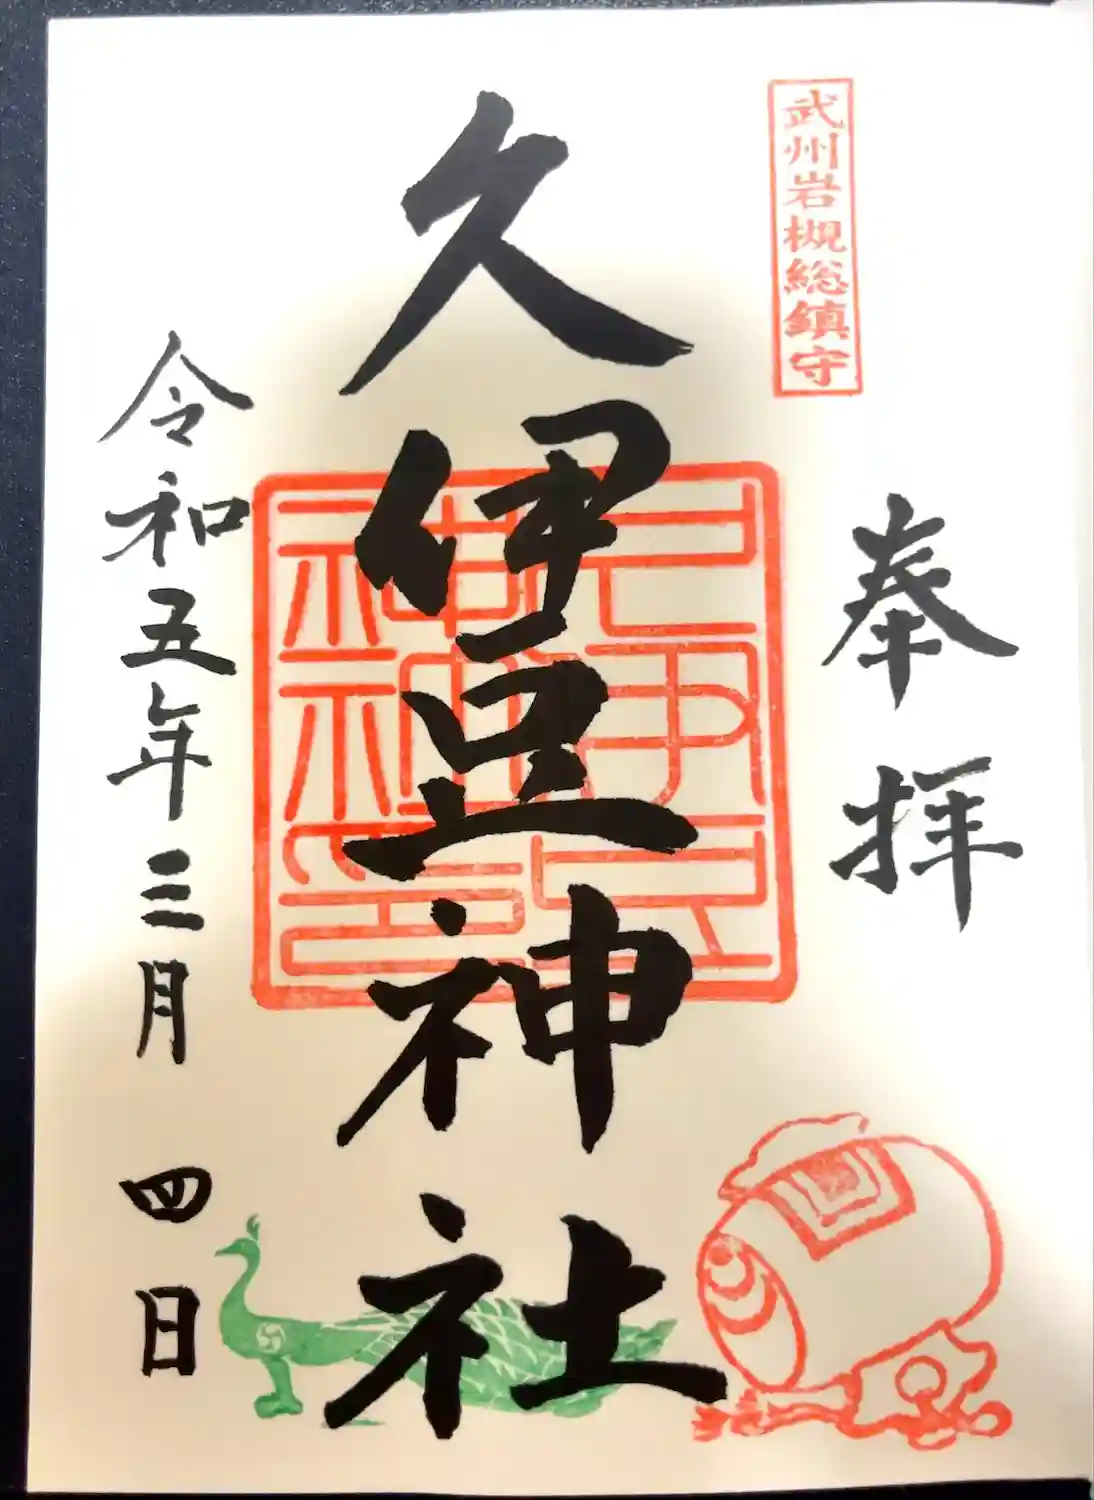 武州岩槻総鎮守
奉拝
久伊豆神社
久伊豆神社神印
令和五年三月四日